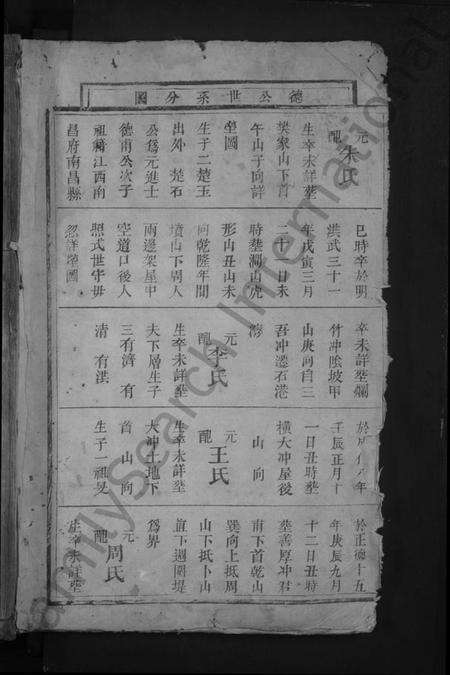 德公世系分圖
元配朱氏
生卒未詳塟
樊家山下首
午山子向詳
塋圖
生子二楚玉
出外 楚石
公爲元進士
德甫公次子
祖籍江西南
昌府南昌縣
巳時卒於明
洪武三十一
年戊寅三月
二十 日未
時塟澗山虎
形山丑山未
向乾隆年間
墳山下周人
兩邊架屋中
空道口後人
照式世守毋
忽詳塋圖
卒未詳塟爛
竹冲陰坡甲
山庚向自三
吾冲遷石港
元配李氏
生卒未詳塟
夫下層生子
三有濟 有
清 有淇
年
壬辰正月十
一日丑時塟
橫大冲屋後
山向
元配王氏
生卒未詳塟
大冲二地下
首 山 向
生子一祖旻
於正德十五
年庚辰九月
十二日丑時
塟善厚冲君
甫下首乾山
巽向上抵周
山下抵卜山
直下過圍堤
爲界
元配周氏
生卒未詳塟
FamilySearch International